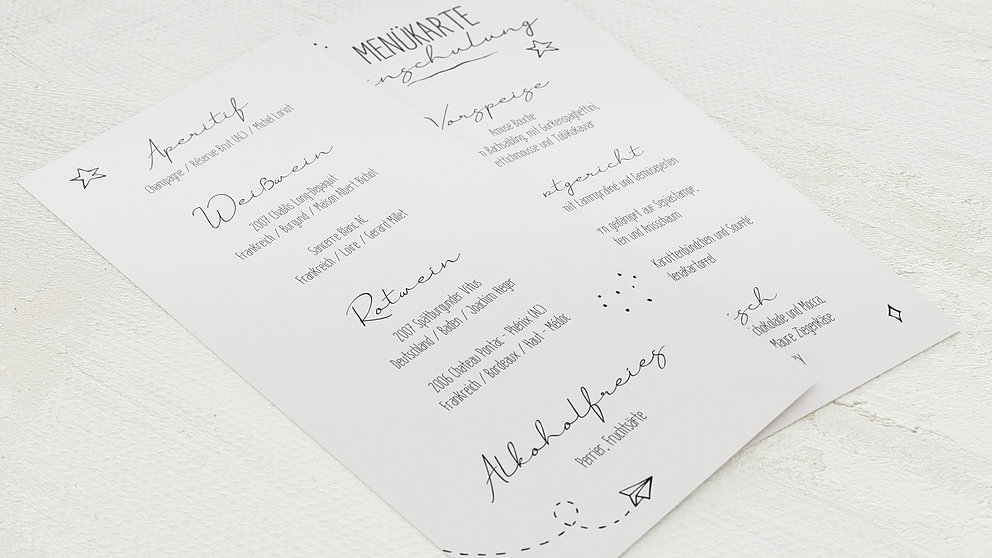 Aperitif
Champagne / Réserve Brut (AC) / Michel Loriot
Weißwein
2007 Chablis Long-depaquit
Frankreich / Burgund / Maison Albert Bichot
Sancerre Blanc AC
Frankreich / Loire / Gerard Millet
Rotwein
2007 Spätburgunder Vitus
Deutschland / Baden / Joachim Heger
2006 Chateau Pontac - Phénix (AC)
Frankreich / Bordeaux / Haut - Médoc
Alkoholfreies
Perrier, Fruchtsäfte
MENÜKARTE
inschulung
Vorspeise
Amuse Bouche
n Bachsaibling, mit Gurkenspaghettini,
ettichmousse und Tobikokaviar
ptgericht
mit Lammpraliné und Gemüseperlen
rn gedämpft auf Sepiastampf,
ten und Anisschaum
Karottenbündchen und Souffé
tenakartoffel
isch
chokolade und Mocca,
Maure Ziegenkäse